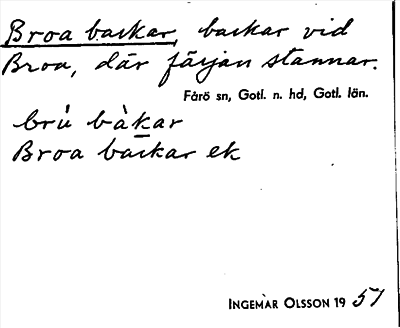 Broa backar, backar vid
Broa, där färjan stannar.
Fårö sn, Gotl. n. hd, Gotl. län.
brú bàkar
Broa backar ek
INGEMAR OLSSON 19 51